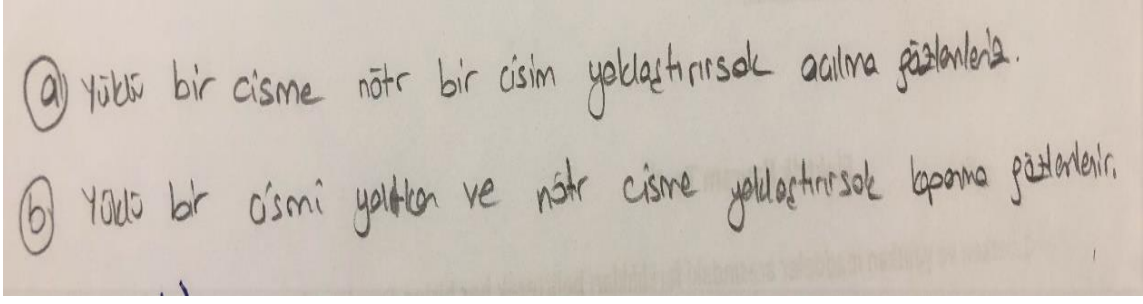 a) Yüklü bir cisme nötr bir cisim yaklaştırırsak açılma gözlenleriz.
b) Yüklü bir cismi yalıtkan ve nötr cisme yaklaştırırsak kapanma gözlenlenir.